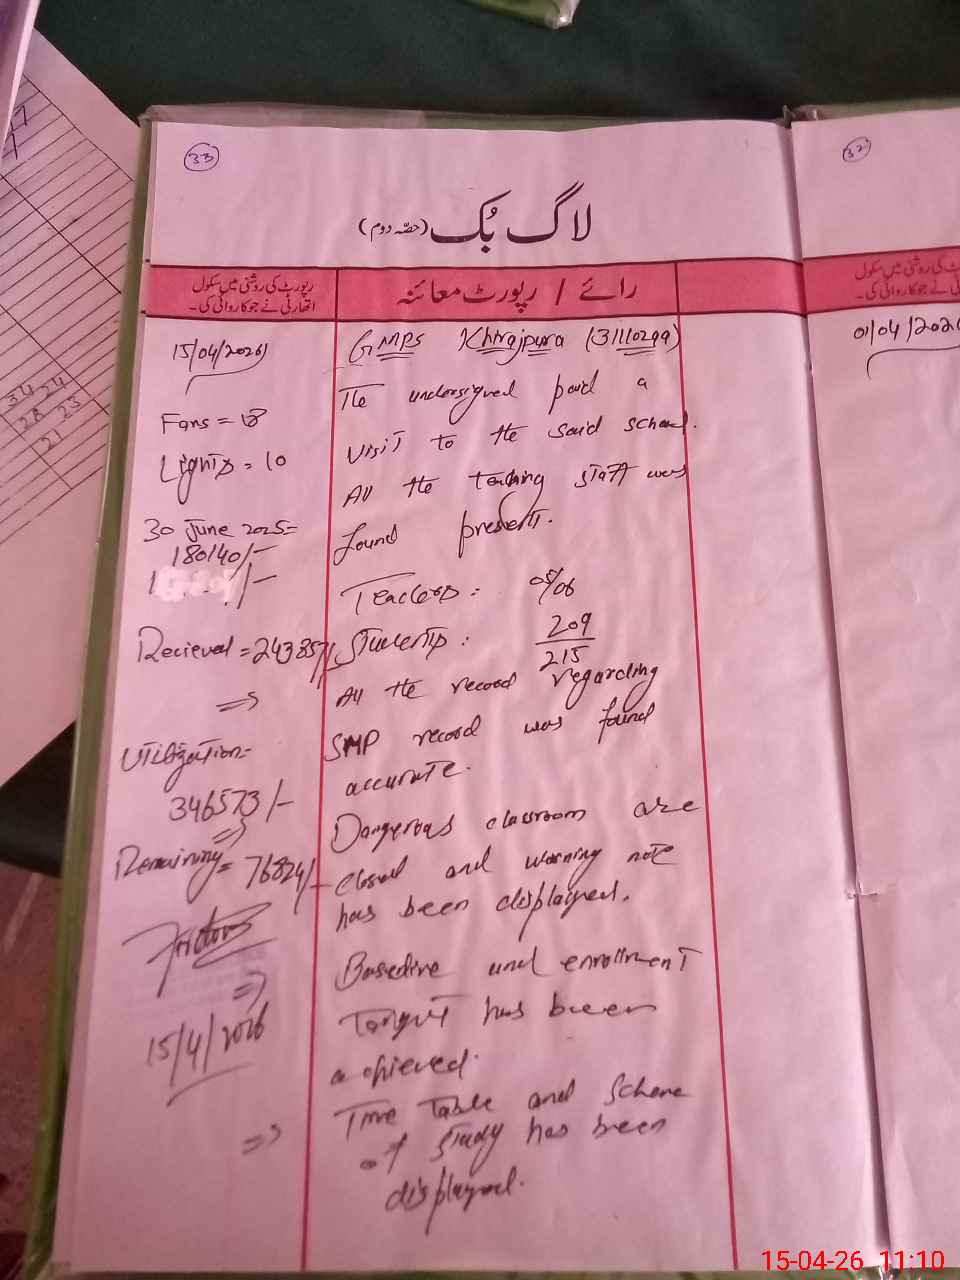 33
لاگ بُک (حصّہ دوم)
رائے / رپورٹ معائنہ
رپورٹ کی روشنی میں سکول
اتھارٹی نے جو کاروائی کی۔
15/04/2026
Fans = 18
Lights = 10
30 June 2025=
180140/-
Recieved = 243857/-
⇒
Utilization=
346573/-
⇒
Remaining = 76824/-
⇒
15/4/2026
⇒
GMPS Khirajpura (31110299)
The undersigned paid a
visit to the said school.
All the teaching staff was
found present.
Teachers : 05/06
Students : 209
215
All the record regarding
SMP record was found
accurate.
Dangerous classroom are
closed and warning note
has been displayed.
Baseline and enrollment
Target has been
achieved.
Time Table and Scheme
of study has been
displayed.
32
01/04/2026
34 24
28 23
21
15-04-26 11:10